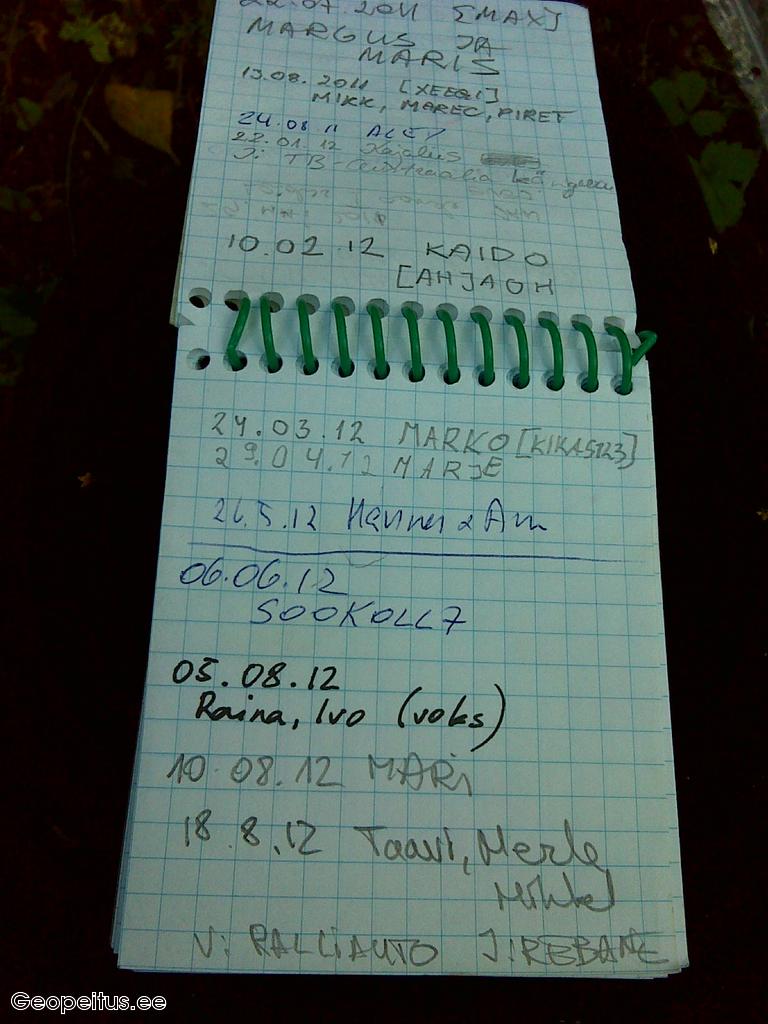 22.07.2011 [MAX]
MARGUS JA
MARIS
13.08.2011 [XEEQI]
MIKK, MAREC, PIRET
24.08 11 ALEX
22.01.12 Kajalus
J: TB - Austraalia känguru
10.02.12 KAIDO
[AHJAOH
24.03.12 MARKO [KIKAS123]
29.04.12 MARJE
26.5.12 Hannes & Ann
06.06.12
SOOKOLL7
05.08.12
Raina, Ivo (voks)
10.08.12 MARi
18.8.12 Taavi, Merle
Mihkel
V: RALLIAUTO J: REBANE
Geopeitus.ee